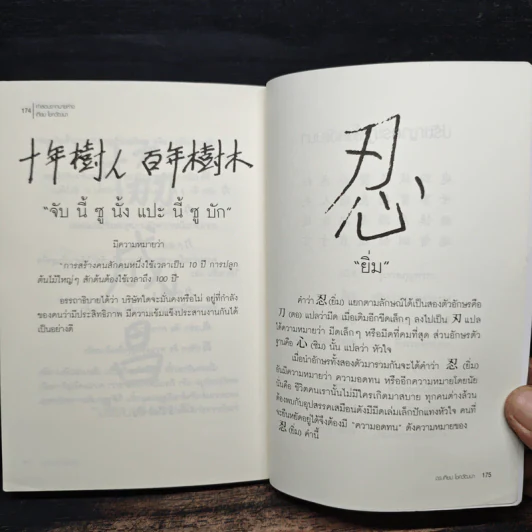 174
十年樹人 百年樹木
"จับ นี้ ซู นั้ง แปะ นี้ ซู บัก"
มีความหมายว่า
"การสร้างคนสักคนหนึ่งใช้เวลาเป็น 10 ปี การปลูก
ต้นไม้ใหญ่ๆ สักต้นต้องใช้เวลาถึง 100 ปี"
อรรถาธิบายได้ว่า บริษัทใดจะมั่นคงหรือไม่ อยู่ที่กำลัง
ของคนว่ามีประสิทธิภาพ มีความเข้มแข็งประสานงานกันได้
เป็นอย่างดี
忍
"ยิ่ม"
คำว่า 忍 (ยิ่ม) แยกตามลักษณ์ได้เป็นสองตัวอักษรคือ
刀 (ตอ) แปลว่ามีด เมื่อเติมอีกขีดเล็กๆ ลงไปเป็น 刃 แปล
ได้ความหมายว่า มีดเล็กๆ หรือมีดที่คมที่สุด ส่วนอักษรตัว
ฐานคือ 心 (ซิม) นั้น แปลว่า หัวใจ
เมื่อนำอักษรทั้งสองตัวมารวมกันจะได้คำว่า 忍 (ยิ่ม)
อันมีความหมายว่า ความอดทน หรืออีกความหมายโดยนัย
นั่นคือ ชีวิตคนเรานั้นไม่มีใครเกิดมาสบาย ทุกคนต่างล้วน
ต้องพบกับอุปสรรคเสมือนดังมีมีดเล่มเล็กปักแทงหัวใจ คนที่
จะยืนหยัดอยู่ได้จึงต้องมี "ความอดทน" ดังความหมายของ
忍 (ยิ่ม) คำนี้
175